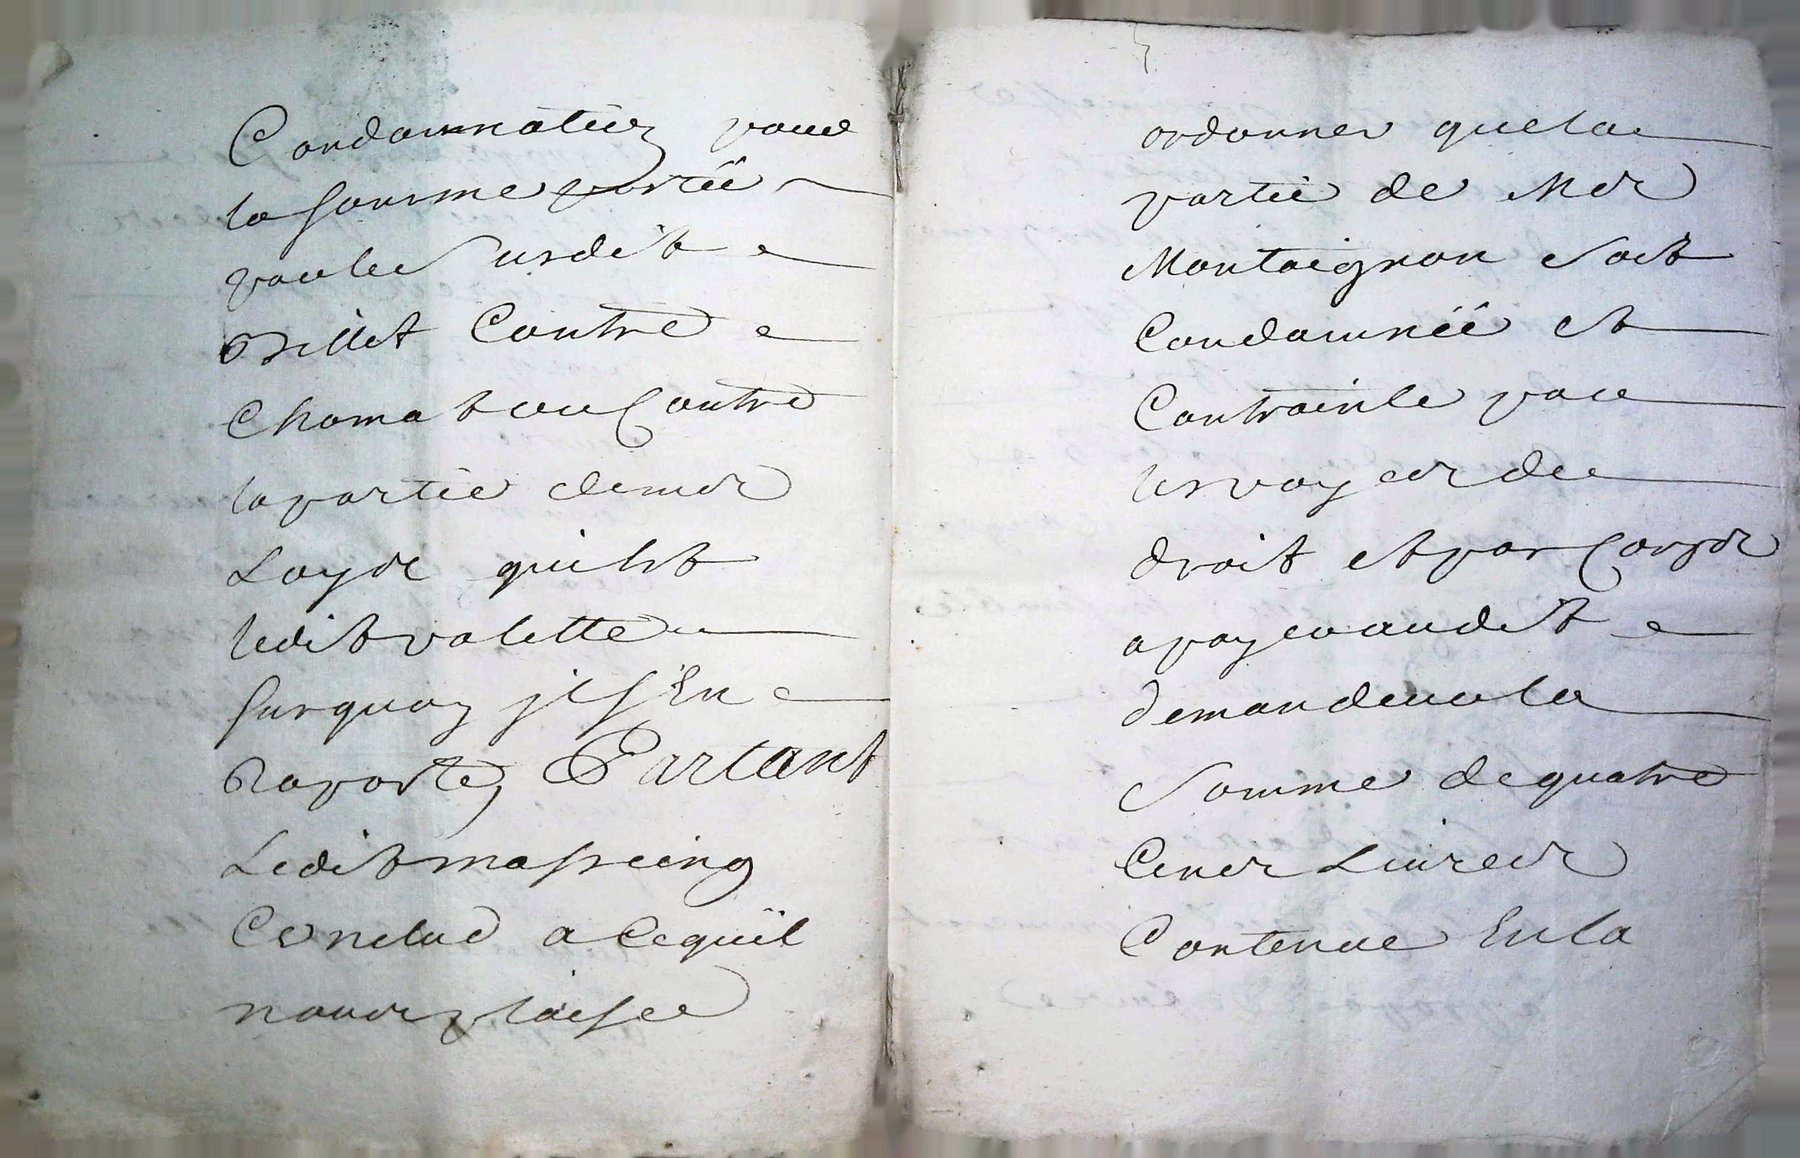 Condamnation pour
la somme portée
par le Susdit
Billet Contre
Chomat ou Contre
la partie de me
Loyde qui est
ledit valette
surquoy il s'en
Raporte, Partant
Ledit masseing
Conclud a Ce quil
nous plaise
ordonner que la
partie de Me
Montaignon soit
Condamnée et
Contrainte par
les voyes de
droit et par Corps
a payer audit
demandeur la
Somme de quatre
Cens Livres
Contenue En la